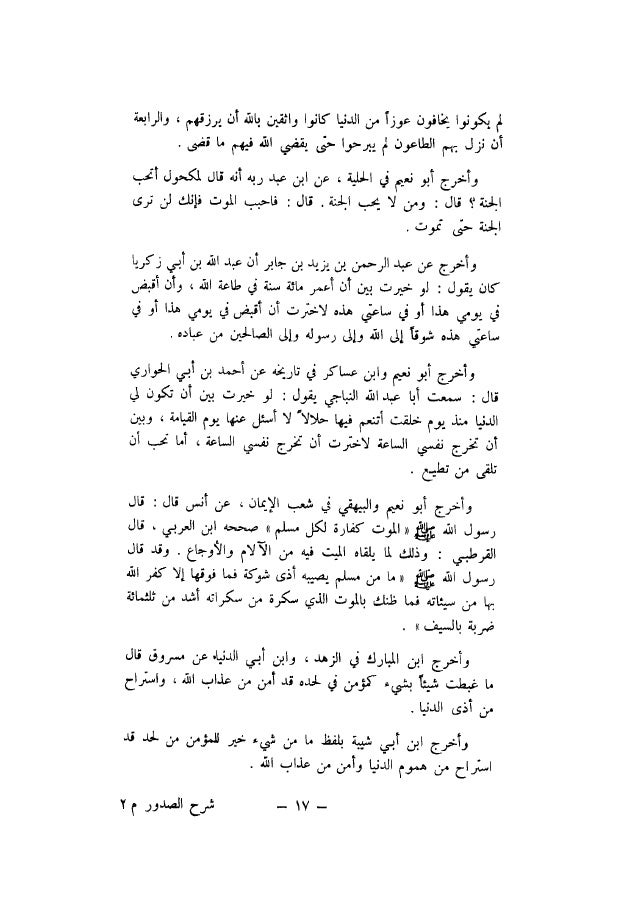 لم يكونوا يخافون عوزاً من الدنيا كانوا واثقين بالله أن يرزقهم ، والرابعة
أن نزل بهم الطاعون لم يبرحوا حتّى يقضي الله فيهم ما قضى .
وأخرج أبو نعيم في الحلية ، عن ابن عبد ربه أنه قال لمكحول أتحب
الجنة ؟ قال : ومن لا يحب الجنة . قال : فاحبب الموت فإنك لن ترى
الجنة حتّى تموت .
وأخرج عن عبد الرحمن بن يزيد بن جابر أن عبد الله بن أبي زكريا
كان يقول : لو خيرت بين أن أعمر مائة سنة في طاعة الله ، وأن أقبض
في يومي هذا أو في ساعتي هذه لاخترت أن أقبض في يومي هذا أو في
ساعتي هذه شوقاً إلى الله وإلى رسوله وإلى الصالحين من عباده .
وأخرج أبو نعيم وابن عساكر في تاريخه عن أحمد بن أبي الحواري
قال : سمعت أبا عبد الله النباجي يقول : لو خيرت بين أن تكون لي
الدنيا منذ يوم خلقت أتنعم فيها حلالاً لا أسئل عنها يوم القيامة ، وبين
أن تخرج نفسي الساعة لاخترت أن تخرج نفسي الساعة ، أما تحب أن
تلقى من تطيع .
وأخرج أبو نعيم والبيهقي في شعب الإيمان ، عن أنس قال : قال
رسول الله ﷺ « الموت كفارة لكل مسلم » صححه ابن العربي ، قال
القرطبي : وذلك لما يلقاه الميت فيه من الآلام والأوجاع . وقد قال
رسول الله ﷺ « ما من مسلم يصيبه أذى شوكة فما فوقها إلا كفر الله
بها من سيئاته فما ظنك بالموت الذي سكرة من سكراته أشد من ثلثمائة
ضربة بالسيف » .
وأخرج ابن المبارك في الزهد ، وابن أبي الدنيا، عن مسروق قال
ما غبطت شيئاً بشيء كمؤمن في لحده قد أمن من عذاب الله ، واستراح
من أذى الدنيا .
وأخرج ابن أبي شيبة بلفظ ما من شيء خير للمؤمن من لحد قد
استراح من هموم الدنيا وأمن من عذاب الله .
– ١٧ –
شرح الصدور م ٢